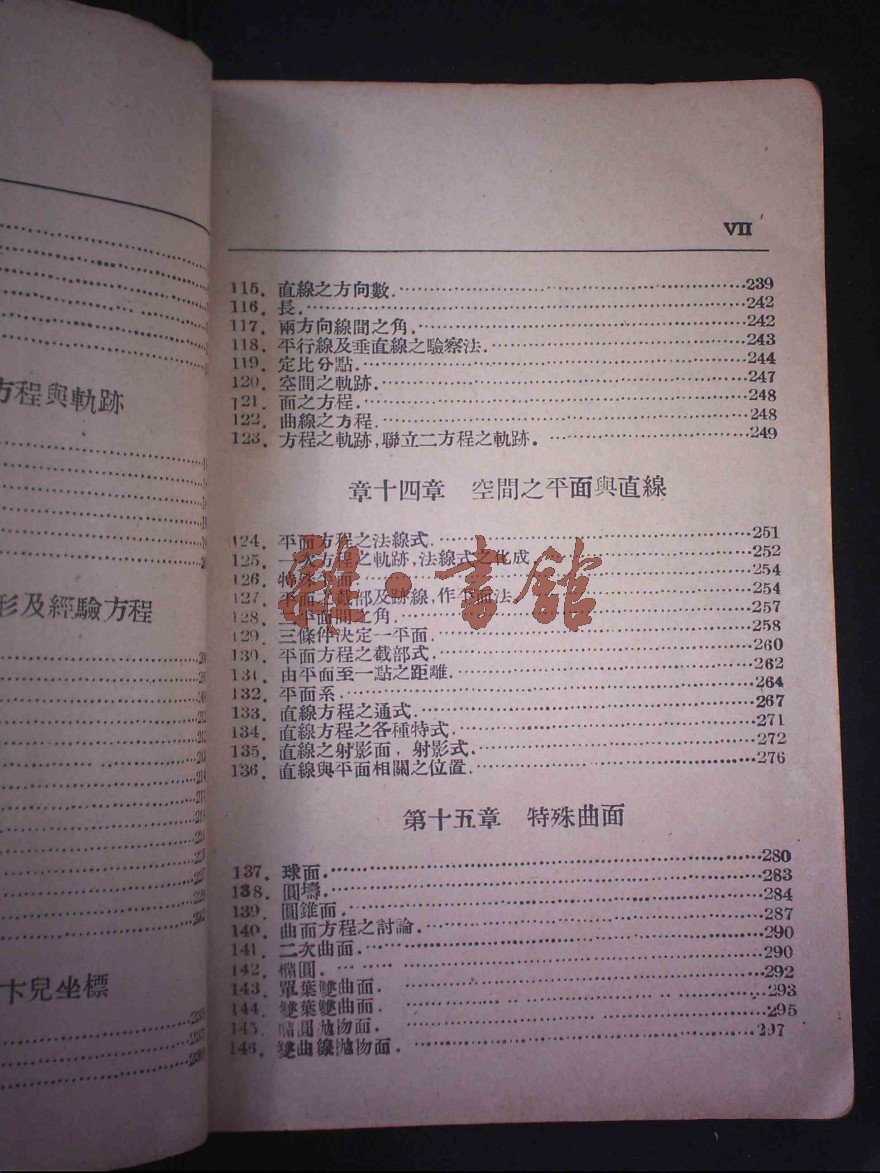 方程與軌跡
形及經驗方程
卡兒坐標
VII
115. 直線之方向數. 239
116. 長. 242
117. 兩方向線間之角. 242
118. 平行線及垂直線之驗察法. 243
119. 定比分點. 244
120. 空間之軌跡. 247
121. 面之方程. 248
122. 曲線之方程. 248
123. 方程之軌跡,聯立二方程之軌跡. 249
章十四章 空間之平面與直線
124. 平面方程之法線式. 251
125. 一次方程之軌跡,法線式之化成 252
126. 特殊平面 254
127. 平面之截部及跡線,作平面法. 254
128. 二平面間之角. 257
129. 三條件決定一平面. 258
130. 平面方程之截部式. 260
131. 由平面至一點之距離. 262
132. 平面系. 264
133. 直線方程之通式. 267
134. 直線方程之各種特式. 271
135. 直線之射影面,射影式. 272
136. 直線與平面相關之位置. 276
雜·書館
第十五章 特殊曲面
137. 球面. 280
138. 圓壔. 283
139. 圓錐面. 284
140. 曲面方程之討論. 287
141. 二次曲面. 290
142. 橢圓. 290
143. 單葉雙曲面. 292
144. 雙葉雙曲面. 293
145. 橢圓拋物面. 295
146. 雙曲線拋物面. 297